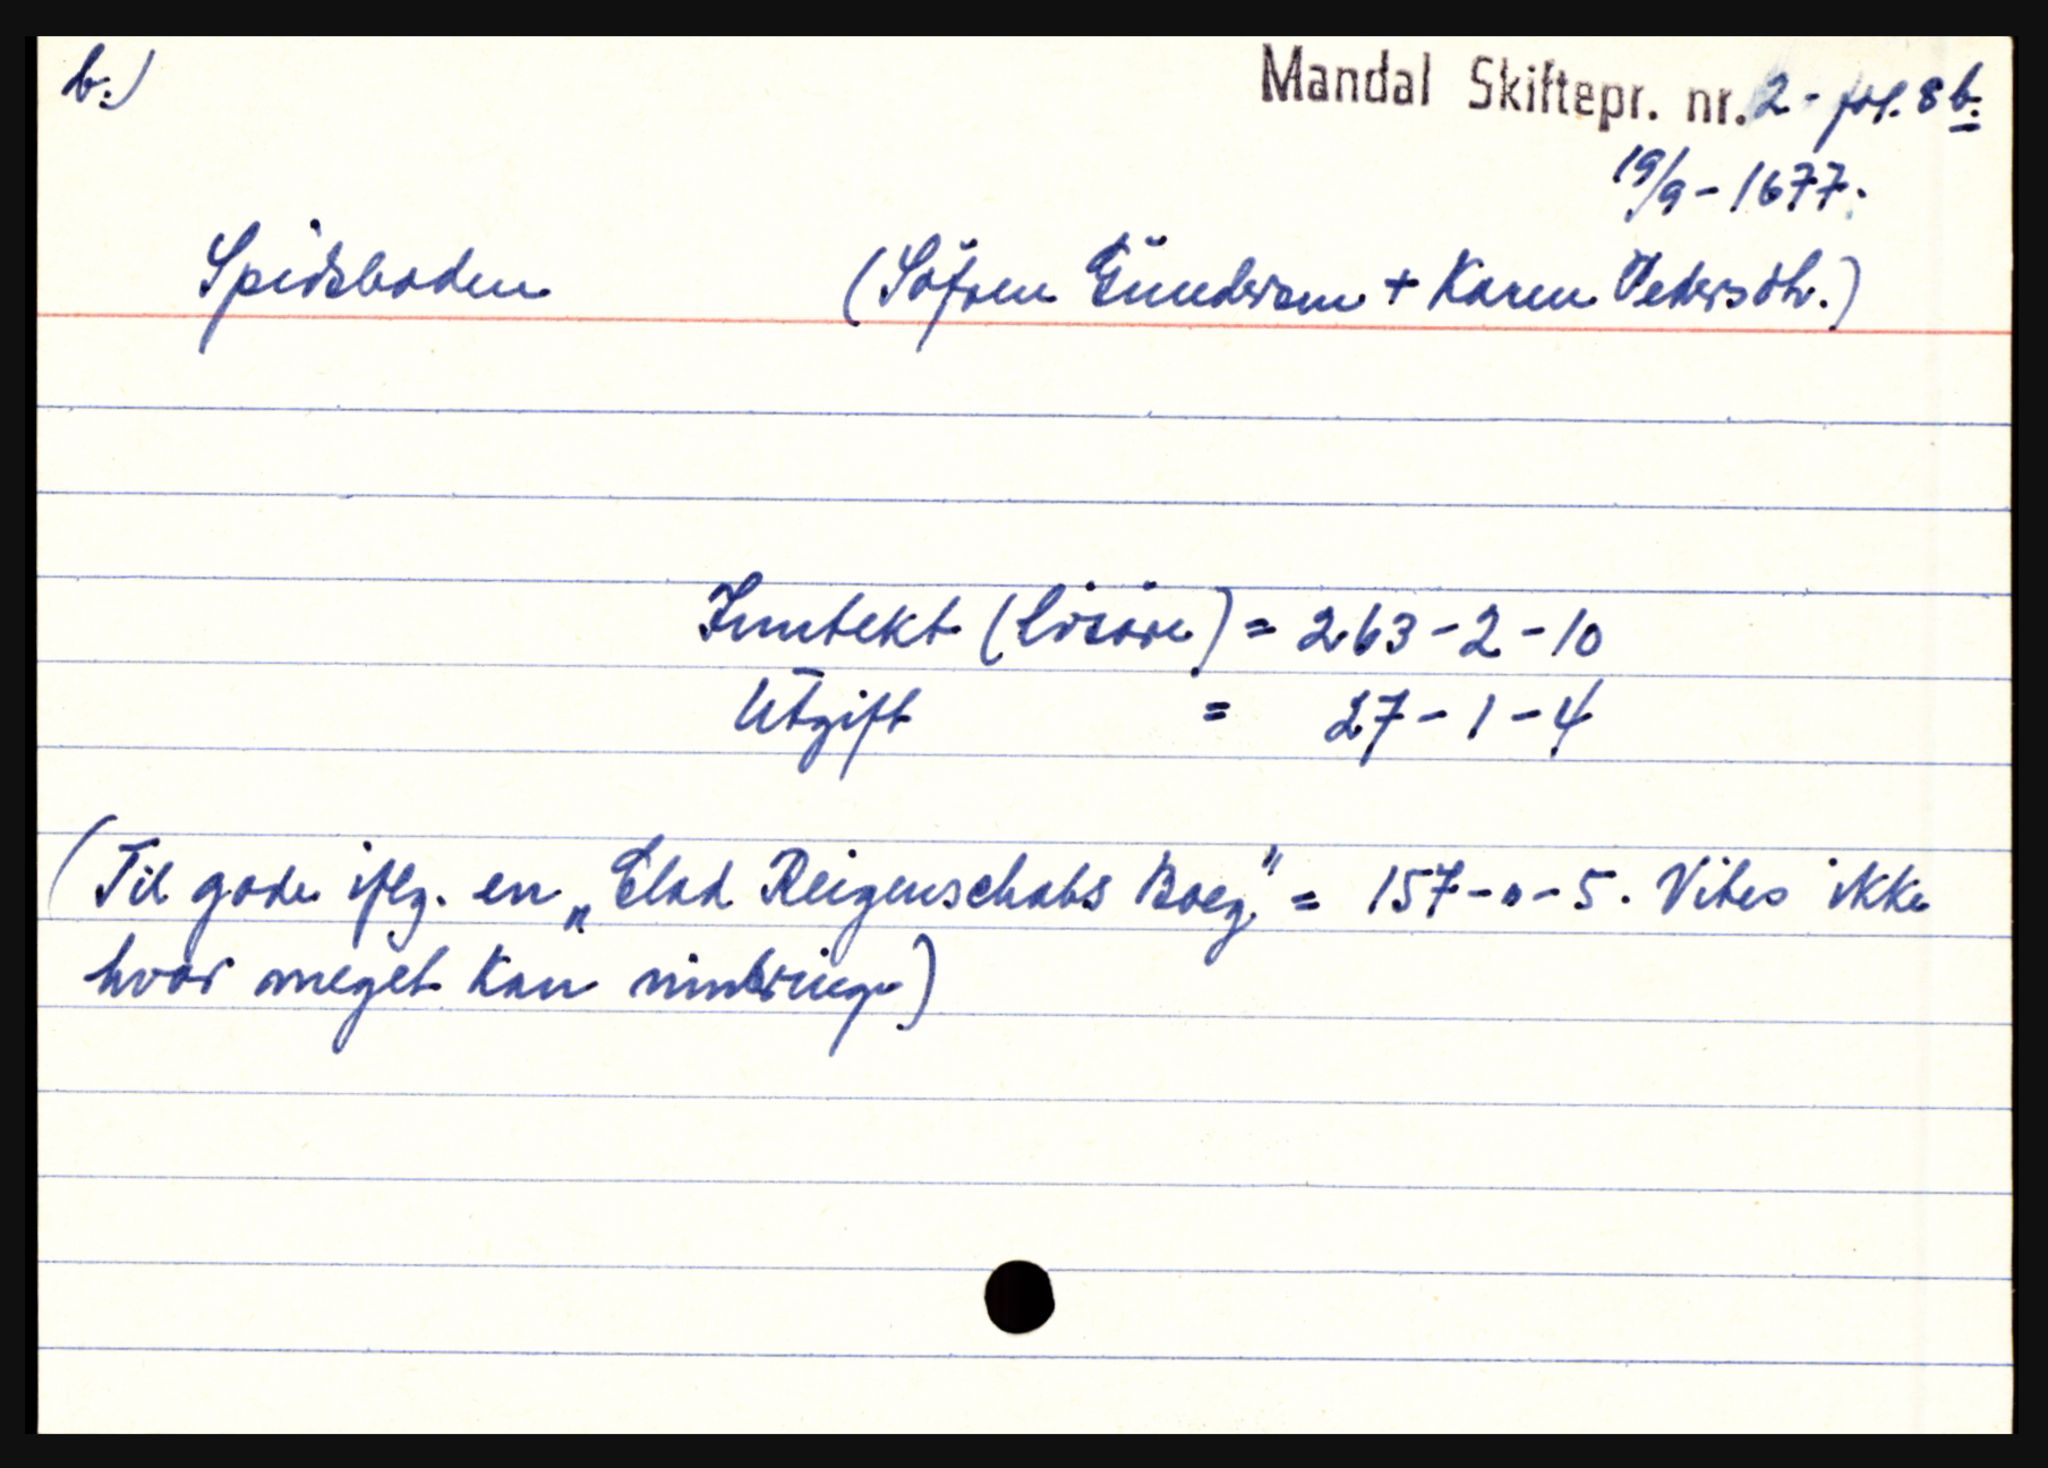 b.)
Mandal Skiftepr. nr. 2 - fol. 8 b.
19/9 - 1677.
Spidsboden (Söfren Gŭndersen + Karen Pedersdtr.)
Inntekt (lösöre) = 263 - 2 - 10
Utgift = 27 - 1 - 4
(Til gode iflg. en „Clad Reigenschabs Boeg" = 157 - 0 - 5. Vites ikke
hvor meget kan innbringe)